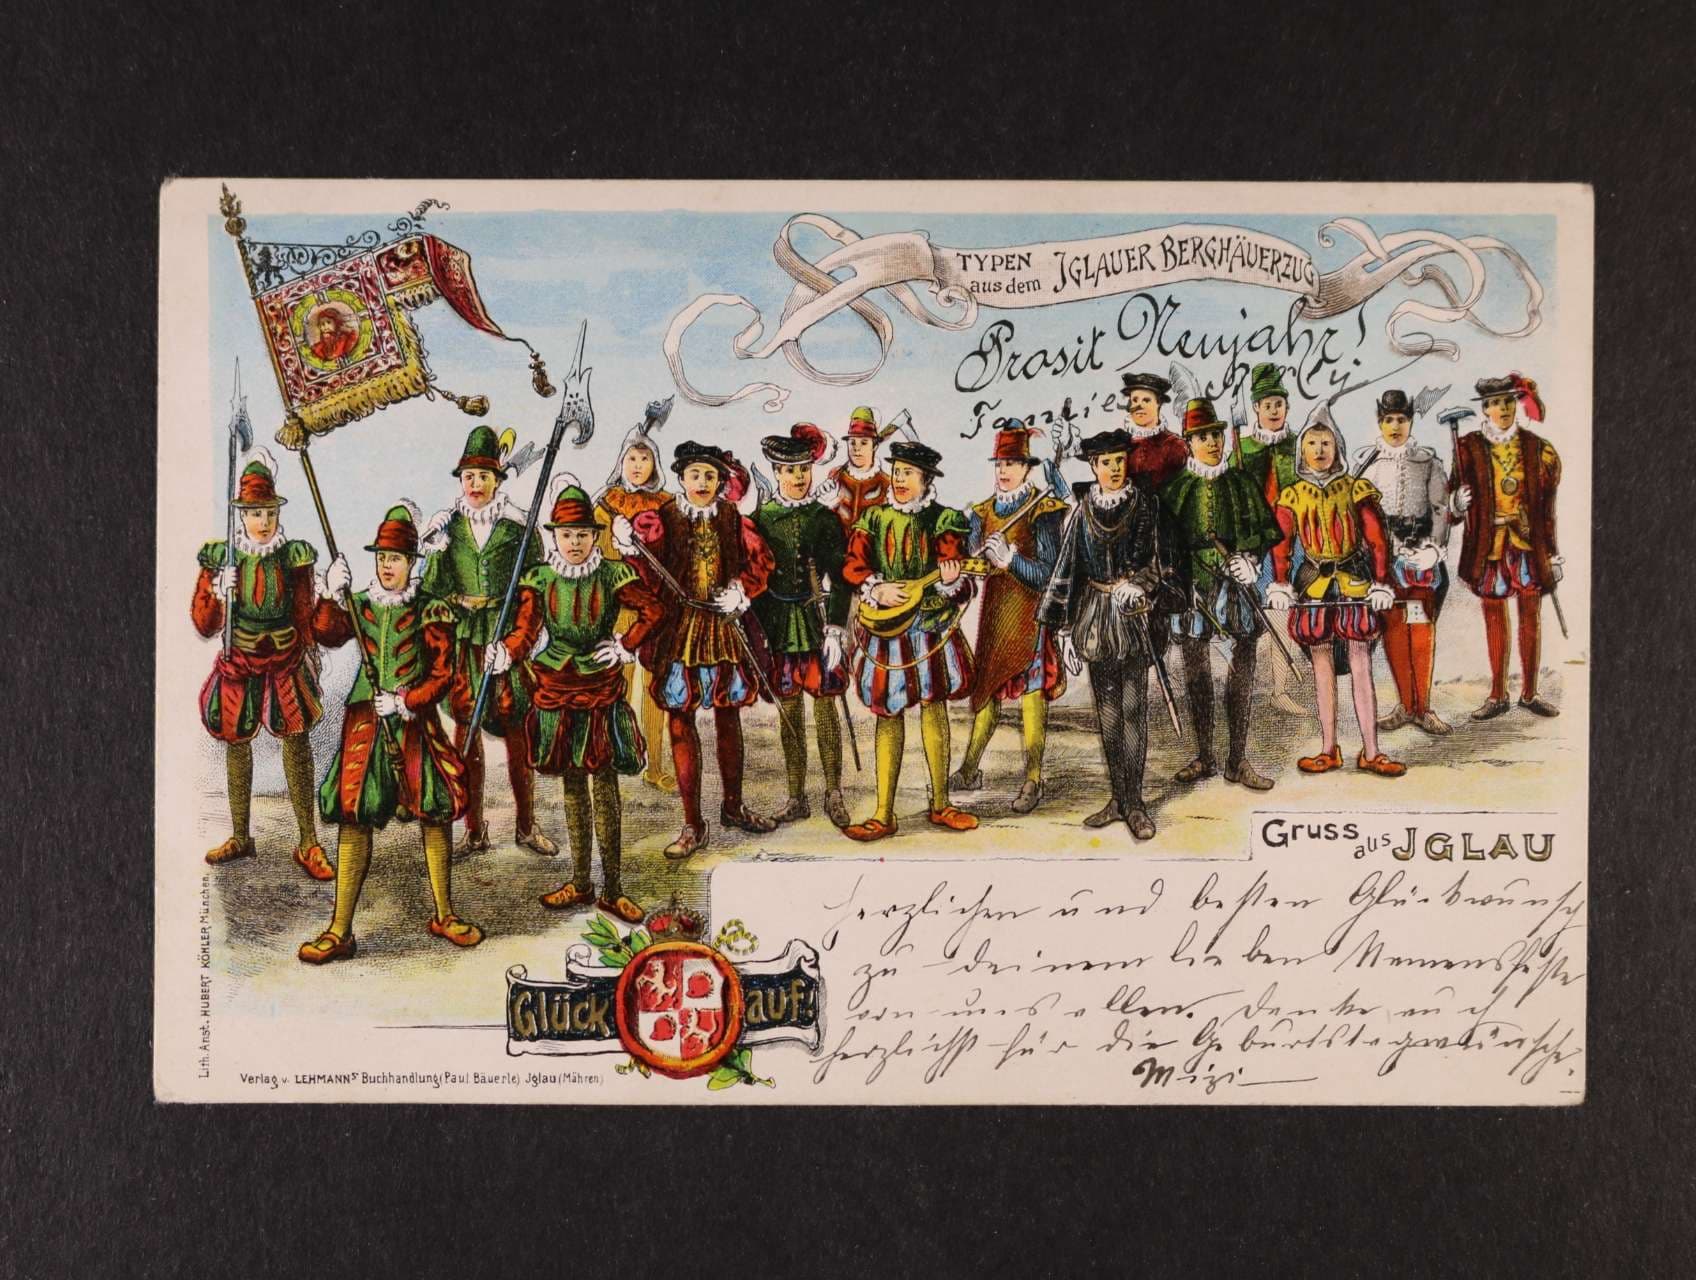 TYPEN
aus dem JGLAUER BERGHÄUERZUG
Prosit Neujahr!
Familie
Gruss
aus JGLAU
Herzlichen und besten Glückwunsch
zu deinem lieben Namensfeste
von uns allen. Danke auch
herzlichst für die Geburtstagwünsche.
Mizi
Glück auf!
Verlag v. LEHMANNS Buchhandlung (Paul Bäuerle) Jglau (Mähren)
Lith. Anst. HUBERT KÖHLER, München.